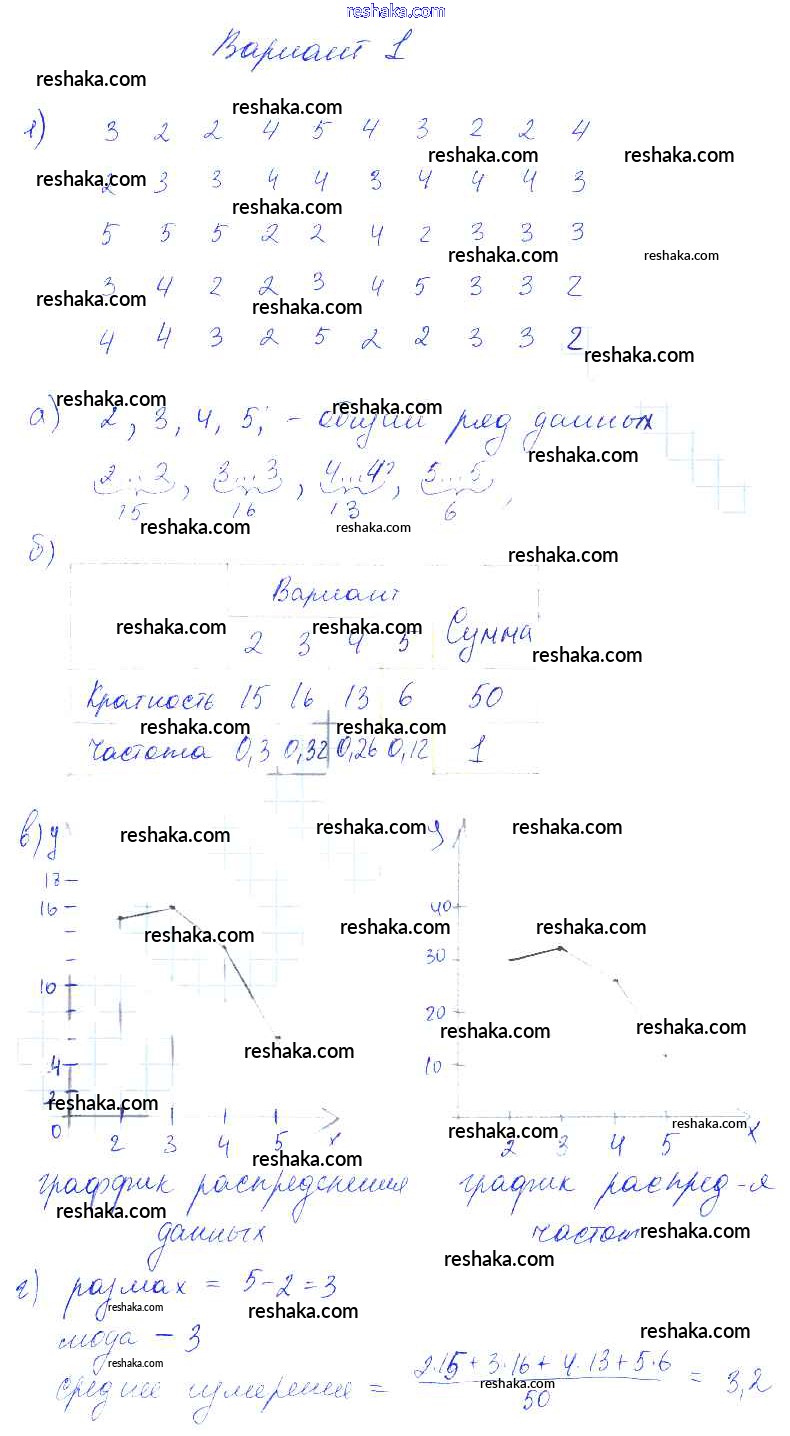 reshaka.com
Вариант 1
reshaka.com
reshaka.com
1) 3 2 2 4 5 4 3 2 2 4
reshaka.com reshaka.com
reshaka.com
2 3 3 4 4 3 4 4 4 3
reshaka.com
5 5 5 2 2 4 2 3 3 3
reshaka.com reshaka.com
3 4 2 2 3 4 5 3 3 2
reshaka.com reshaka.com
4 4 3 2 5 2 2 3 3 2
reshaka.com
reshaka.com reshaka.com
а) 2, 3, 4, 5; - общий ряд данных
reshaka.com
2...2, 3...3, 4...4, 5...5,
15 16 13 6
reshaka.com reshaka.com
б)
reshaka.com
Вариант
reshaka.com reshaka.com
2 3 4 5 Сумма
reshaka.com
Кратность 15 16 13 6 50
reshaka.com reshaka.com
Частота 0,3 0,32 0,26 0,12 1
в) у у
reshaka.com reshaka.com reshaka.com
16 40
reshaka.com reshaka.com reshaka.com
30
10
20
reshaka.com reshaka.com
reshaka.com
4 10
2
reshaka.com
0 2 3 4 5 х 2 3 4 5 х
reshaka.com reshaka.com
reshaka.com
графдик распределения график распред-я
reshaka.com
данных частот
reshaka.com
reshaka.com
г) размах = 5-2=3
reshaka.com reshaka.com
мода - 3
reshaka.com
reshaka.com
среднее измерение = 2·15+3·16+4·13+5·6 = 3,2
reshaka.com
50